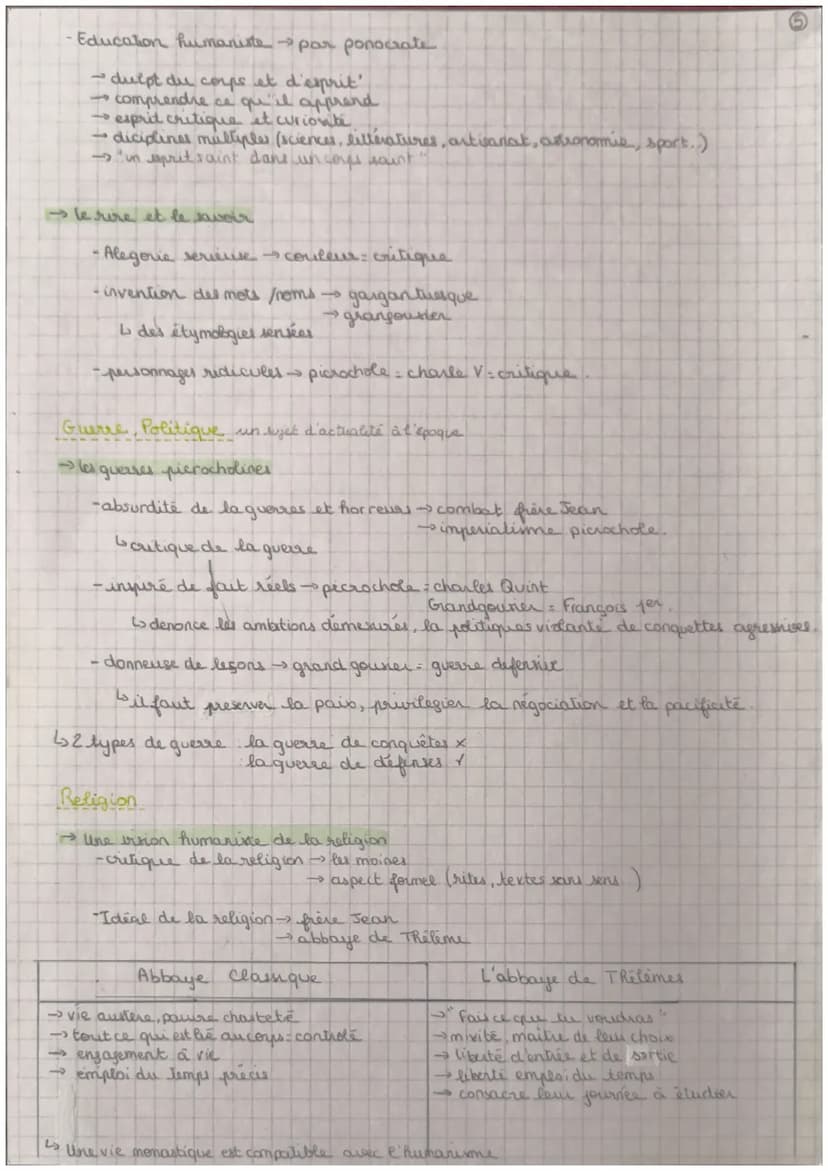 5
- Education humaniste → par ponocrate
→ dulpt du corps et d'esprit'
→ comprendre ce qu'il apprend
→ esprid critique et curiosité
→ diciplines multiples (sciences, littératures, artisanat, astronomie, sport..)
→ "un esprit saint dans un corps saint"
→ le rire et le savoir
- Alegorie serieuse → couleur = critique
- invention des mots /noms → gargantuesque
→ grangousier
↳ des étymologies sensées
- personnages redicules → picrochole = charle V = critique.
Guerre, Politique un sujet d'actualité à l'époque
→ les guerres picrocholines
- absurdité de la guerres et horreurs → combat frère Jean
→ imperialisme picrochole.
↳ critique de la guerre
- inspiré de fait réels → picrochole = charles Quint
Grandgousier = François 1er.
↳ denonce les ambations démesurés, la politiques violante de conquettes agressives.
- donneuse de leçons → grand gousier = guerre defensive
↳ il faut preserver la paix, privilegier la négociation et la pacificité.
↳ 2 types de guerre : la guerre de conquêtes x
: la guerre de défenses ✓
Religion
→ Une vision humaniste de la religion
- critique de la religion → les moines
→ aspect formel (rites, textes sans sens )
- Idéal de la religion → frère Jean
→ abbaye de Thélème
Abbaye Classique
L'abbaye de Thélèmes
→ vie austère, pauvre chasteté
→ "Fais ce que tu voudras"
→ tout ce qui est lié au corps = controlé
→ mixité, maitre de leur choix
→ engagement à vie
→ liberté d'entrée et de sortie
→ emploi du temps précis
→ liberté emploi du temps
→ consacre leur journée à étudier
↳ Une vie monastique est compatible avec l'humanisme